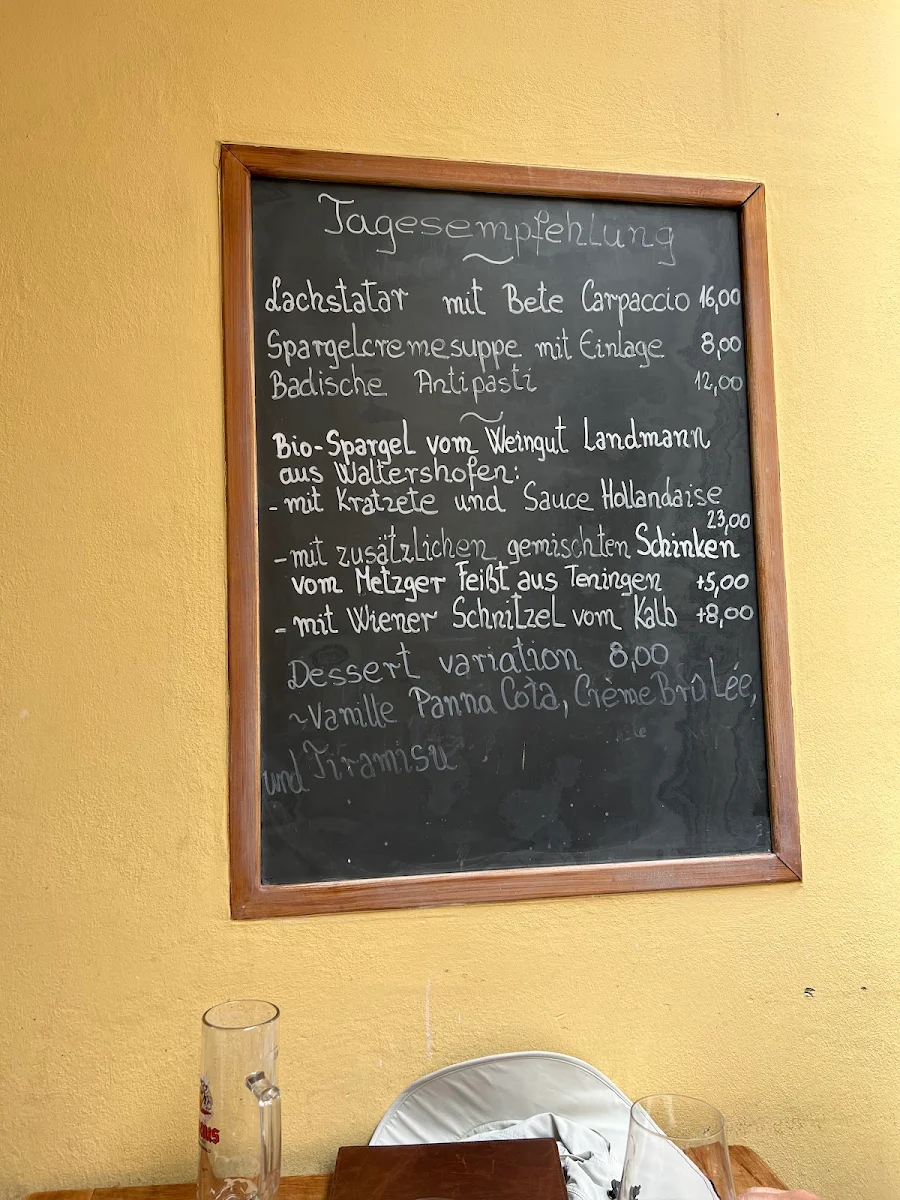 Tagesempfehlung
Lachstatar mit Bete Carpaccio 16,00
Spargelcremesuppe mit Einlage 8,00
Badische Antipasti 12,00
Bio-Spargel vom Weingut Landmann
aus Waltershofen:
- mit Kratzete und Sauce Hollandaise
23,00
- mit zusätzlichen gemischten Schinken
vom Metzger Feißt aus Teningen +5,00
- mit Wiener Schnitzel vom Kalb +8,00
Dessert variation 8,00
~Vanille Panna Cota, Crème Brûlée,
und Tiramisu